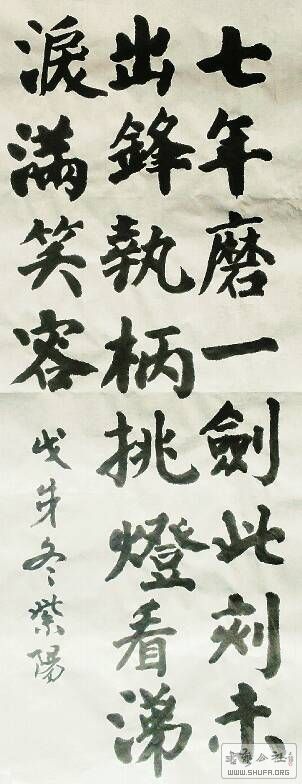 七年磨一劍此刻未
出鋒執柄挑燈看涕
淚滿笑容
冬紫陽
WWW.SHUFA.ORG